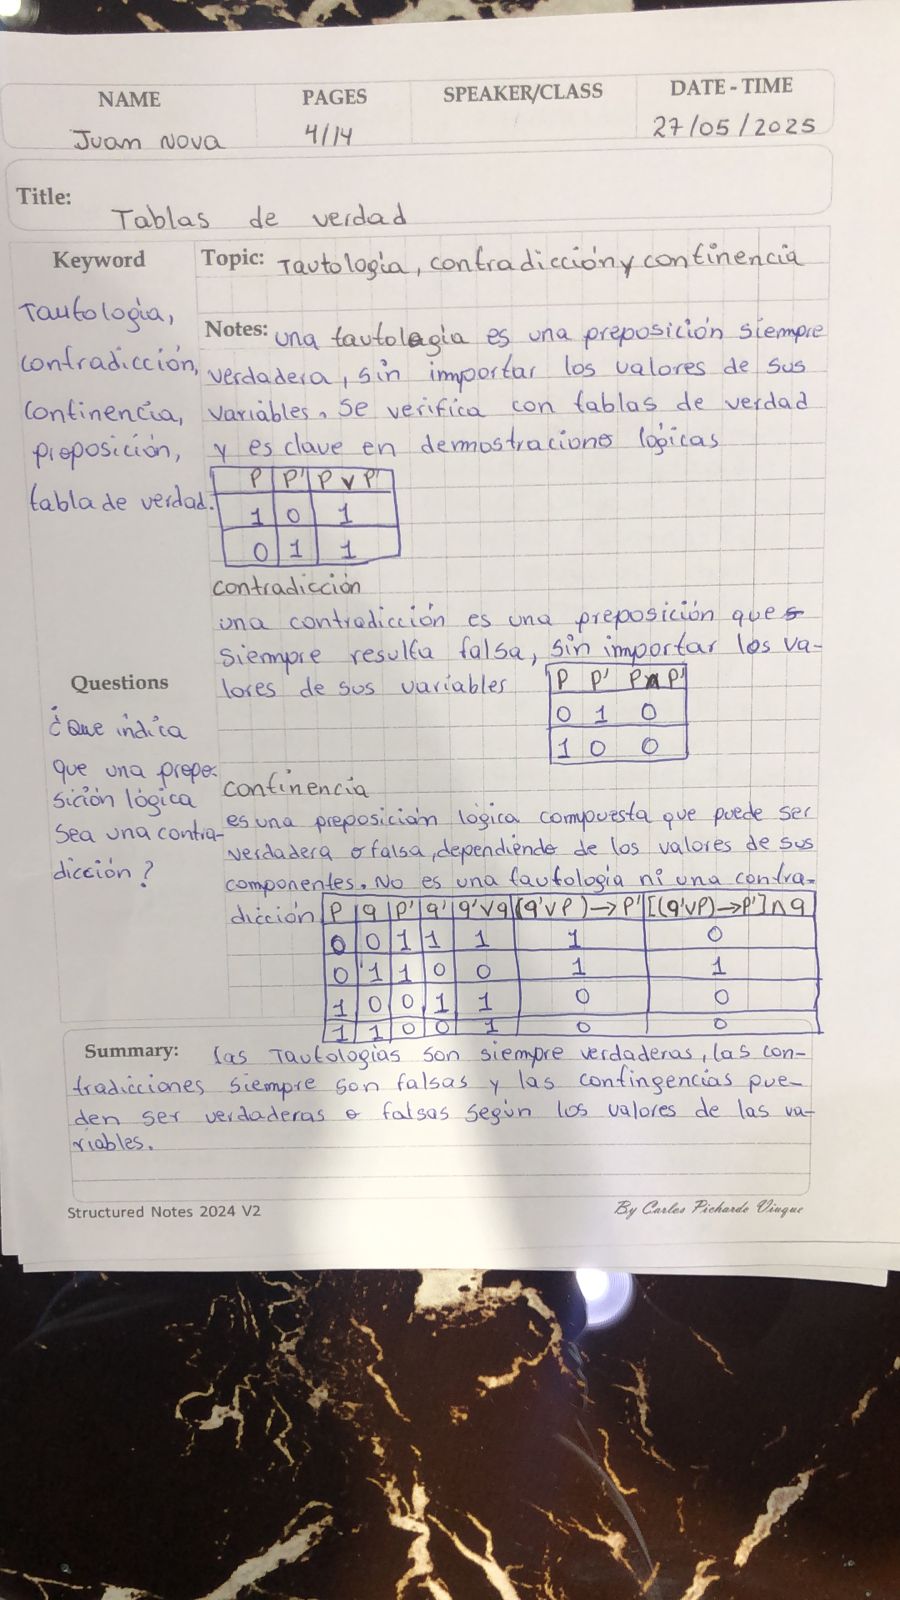 NAME PAGES SPEAKER/CLASS DATE - TIME
Juan Nova 4/14 27/05/2025
Title: Tablas de verdad
Keyword
Tautologia,
contradicción,
continencia,
proposición,
tabla de verdad.
Topic: Tautologia, contradicción y continencia
Notes: una tautologia es una preposición siempre
verdadera, sin importar los valores de sus
variables. Se verifica con tablas de verdad
y es clave en demostraciones lógicas
P P' P v P'
1 0 1
0 1 1
contradicción
una contradicción es una preposición que
siempre resulta falsa, sin importar los va-
lores de sus variables
P P' P∧P'
0 1 0
1 0 0
Questions
¿Que indica
que una propo-
sición lógica
sea una contra-
dicción?
continencia
es una preposición lógica compuesta que puede ser
verdadera o falsa, dependiendo de los valores de sus
componentes. No es una tautologia ni una contra-
dicción
P q P' q' q'vq (q'vP)→P' [(q'vP)→P']∩q
0 0 1 1 1 1 0
0 1 1 0 0 1 1
1 0 0 1 1 0 0
1 1 0 0 1 0 0
Summary: las Tautologias son siempre verdaderas, las con-
tradicciones siempre son falsas y las contingencias pue-
den ser verdaderas o falsas según los valores de las va-
riables.
Structured Notes 2024 V2 By Carlos Pichardo Viuque